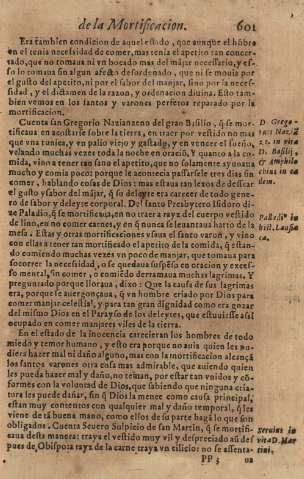 de la Mortificacion. 601
Era tambien condicion de aquel estado, que aunque el hõbre
en el tenia necessidad de comer, mas tenia el apetito tan concer-
tado, que no tomaua ni vn bocado mas del mãjar necessario, y es-
so lo tomaua sin algun afecto desordenado, que ni se mouia por
el gusto del apetito, ni por el sabor del manjar, sino por la neces-
sidad, y el dictamen de la razon, y ordenacion diuina. Esto tam-
bien vemos en los santos y varones perfetos reparado por la
mortificacion.
Cuenta san Gregorio Nazianzeno del gran Basilio, q̃ se mor-
tificaua en acostarse sobre la tierra, en traer por vestido no mas
que vna tunica, y vn palio viejo y gastado, y en vencer el sueño,
velando muchas vezes toda la noche en oraciõ, y quanto a la co-
mida, vino a tener tan sano el apetito, que no solamente ayunaua
mucho y comia poco: porque le acontecia passarsele tres dias sin
comer, hablando cosas de Dios: mas estaua tan lexos de dessear
el gusto y sabor del mãjar, q̃ su deleyte era carecer de todo gene-
ro de sabor y deleyte corporal. Del santo Presbytero Isidoro di-
ze Paladio, q̃ se mortificaua, en no traer a rayz del cuerpo vestido
de lino, en no comer carnes, y en q̃ nunca se leuantaua harto de la
mesa. Estas y otras mortificaciones vsaua el santo varon, y vino
con ellas a tener tan mortificado el apetito de la comida, q̃ estan-
do comiendo muchas vezes vn poco de manjar, que tomaua para
socorrer la necessidad, o se quedaua suspẽso en oracion y exces-
so mental, sin comer, o comiẽdo derramaua muchas lagrimas. Y
preguntado porque lloraua, dixo: Que la causa de sus lagrimas
era, porque se auergonçaua, q̃ vn hombre criado por Dios para
comer manjar celestial, y para tan gran dignidad como era gozar
del mismo Dios en el Parayso de los deleytes, que estuuiesse assi
ocupado en comer manjares viles de la tierra.
En el estado de la inocencia carecieran los hombres de todo
miedo y temor humano, y esto era porque no auia quien les pu-
diera hazer mal ni daño alguno, mas con la mortificacion alcançã
los santos varones otra cosa mas admirable, que auiendo quien
les pueda hazer mal y daño, no teman, por estar tan vnidos y cõ-
formes con la voluntad de Dios, que sabiendo que ninguna cria-
tura les puede dañar, sin q̃ Dios la menee como causa principal,
estan muy contentos con qualquier mal y daño temporal, q̃ les
viene de tã buena mano, como ellos de parte haga lo que son
obligados. Cuenta Seuero Sulpicio de san Martin, q̃ se mortifi-
caua desta manera: traya el vestido muy vil y despreciado aũ des-
pues de Obispo: a rayz de la carne traya vn cilicio: no se assenta-
PP 5 ua
D. Grego-
rius Naziã
D. Basilij,
& Amphilo
chius in ea
dem.
Palladi' in
hist. Lausia
ca.
Seuerus in
vita D. Mar
tini.